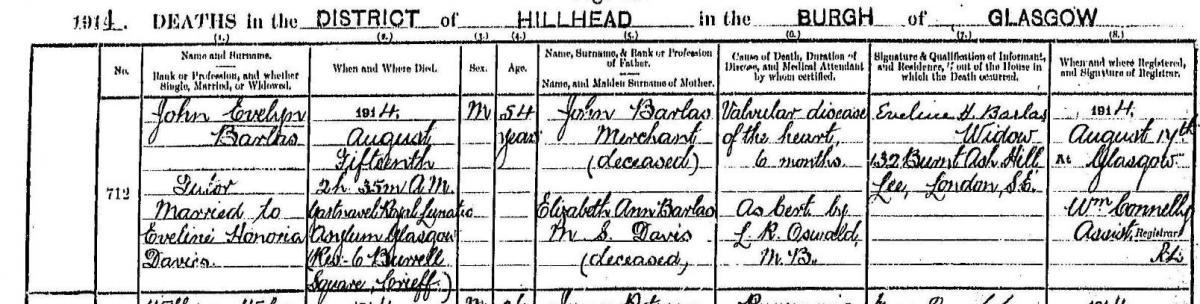 1914. DEATHS in the DISTRICT of HILLHEAD in the BURGH of GLASGOW
(1.) (2.) (3.) (4.) (5.) (6.) (7.) (8.)
No.
Name and Surname.
Rank or Profession, and whether
Single, Married, or Widowed.
When and Where Died.
Sex.
Age.
Name, Surname, & Rank or Profession
of Father.
Name, and Maiden Surname of Mother.
Cause of Death, Duration of
Disease, and Medical Attendant
by whom certified.
Signature & Qualification of Informant,
and Residence, if out of the House in
which the Death occurred.
When and where Registered,
and Signature of Registrar.
712
John Evelyn
Barlas
Tutor
Married to
Eveline Honoria
Davis.
1914,
August
Fifteenth
2h. 35m. A.M.
Gartnavel Royal Lunatic
Asylum Glasgow
(Res. 6 Burrell
Square, Crieff)
M
54
years
John Barlas
Merchant
(deceased)
Elizabeth Ann Barlas
M. S. Davis
(deceased)
Valvular disease
of the heart,
6 months.
As Cert by
L. R. Oswald,
M.B.
Eveline H. Barlas
Widow
132 Burnt Ash Hill
Lee, London, S.E.
1914,
August 17th
At Glasgow
Wm Connelly
Assist. Registrar